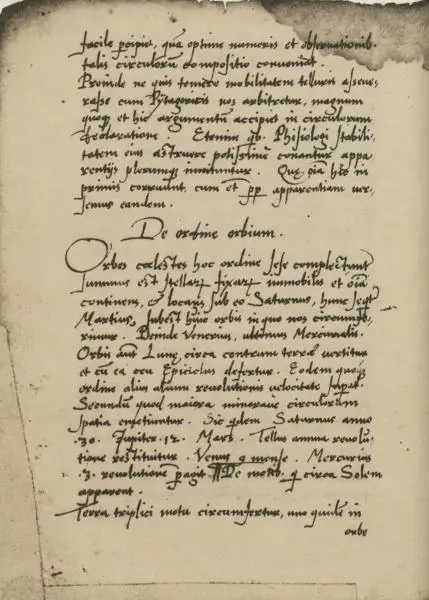 facile percipiet, quam optime numeris et observationib.
talis circulorum compositio conveniat.
Proinde ne quis temere mobilitatem telluris asseve-
rasse cum Pytagoricis nos arbitretur, magnum
quoq et hic argumentum accipiet in circulorum
declaratione. Etenim qb. Phisiologi stabili-
tatem eius astruere potissime conantur appa
rentijs plerumq innituntur. Que oia hic in
primis corruunt cum et pp apparentiam ver-
semus eandem.
De ordine orbium.
Orbes cœlestes hoc ordine sese complectunt
summus est stellar fixar immobilis et oia
continens, & locans sub eo Saturnus, hunc seqt
Martius, subest huic orbis in quo nos circumfe-
rimur. Deinde Venerius, ultimus Mercurialis.
Orbis aut Lune circa centrum terræ vertitur
et cu ea ceu Epiciclus defertur. Eodem quoq
ordine alius alium revolutionis velocitate supat.
Secundum quod maiora minorave circulorum
spatia emetiuntur. Sic qdem Saturnus anno
.30. Jupiter .12. Mars. Tellus annua revolu-
tione restituitur. Venus 9 mense. Mercurius
.3. revolutione pagit De motib. q circa Solem
apparent.
Terra triplici motu circumfertur, uno quidem in
orbe